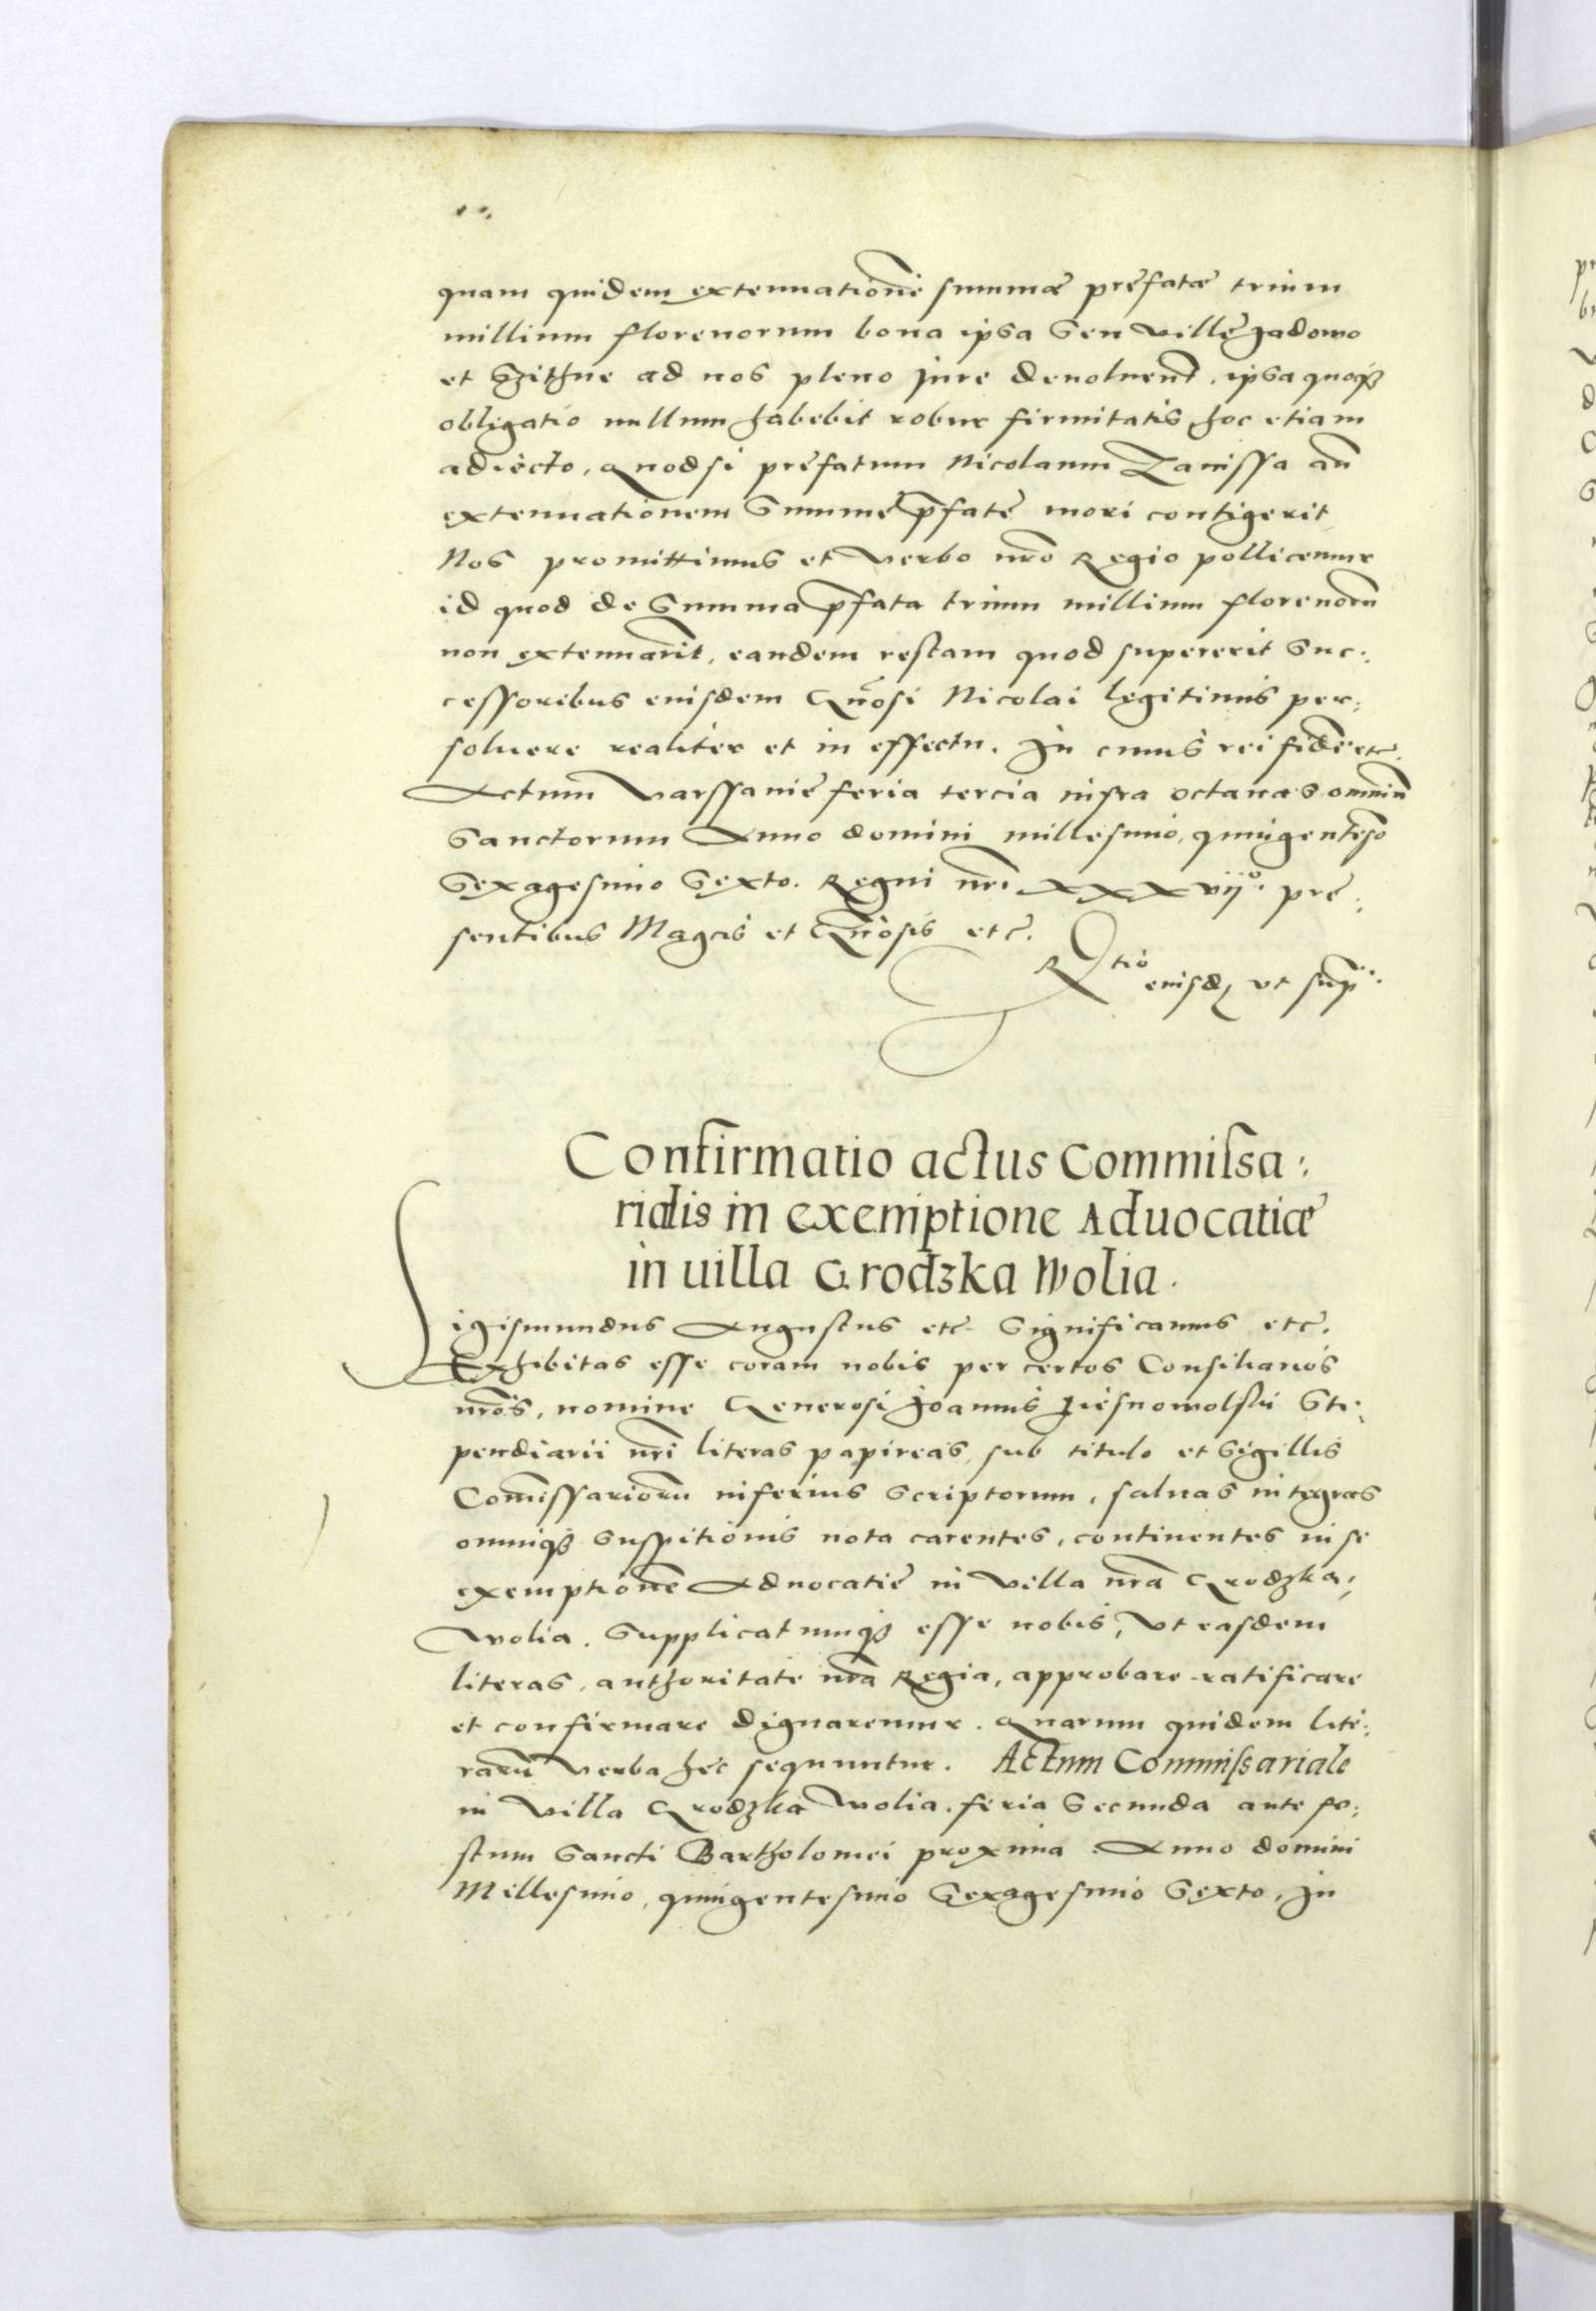 quam quidem extenuatione͂ summæ prefatæ trium
millium florenorum bona ipsa seu ville Jadowo
et Szithne ad nos pleno jure deuoluent. ipsa quoqꝫ
obligatio nullum habebit robur firmitatis, hoc etiam
adiecto, Quod si prefatum Nicolaum Zauissa an̄
extenuationem Summe p̄fate mori contigerit
Nos promittimus et verbo nr̄o Regio pollicemur
id quod de Summa p̄fata trium millium florenorū
non extenuarit, eandem restam quod supererit Suc:
cessoribus eiusdem Gn̄osi Nicolai legitimis per:
soluere realiter et in effectu. In cuius rei fidē etc.
Actum Varssauie feria tercia infra octauas omniū
Sanctorum Anno domini millesimo, quingentesō
Sexagesimo Sexto. Regni nr̄i xxxvijº. pre:
sentibus Magcis et Gn̄osis etc.
Rtio
eiusdꝫ vt sup̄:
Confirmatio actus Commissa:
rialis in exemptione Aduocatiæ
in uilla Grodzka Wolia.
Sigismundus Augustus etc. Significamus etc.
Exhibitas esse coram nobis per certos Consiliarios
nr̄os, nomine Generosi Joannis Jiesnowolski Sti:
pendiarii nr̄i literas papireas, sub titulo et Sigillis
Com̄issariorū inferius Scriptorum, saluas integras
omniqꝫ Suspitionis nota carentes, continentes in se
exemptionē Aduocatie in villa nr̄a Grodzka:
wolia. Supplicatumqꝫ esse nobis, vt easdem
literas, authoritate nr̄a Regia, approbare ratificare
et confirmare dignaremur. Quarum quidem lite:
rarū verba hec sequuntur. Actum Commissariale
in villa Grodzka wolia. feria Secunda ante fe:
stum Sancti Bartholomei proxima Anno domini
Millesimo, quingentesimo Sexagesimo Sexto, In